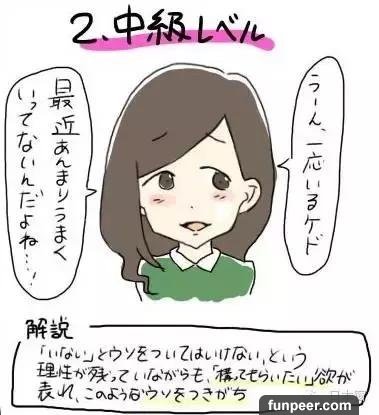 2.中級レベル
うーん、一応いるケド
最近あんまりうまく
いってないんだよね…!
解説
「いない」とウソをついてはいけない、という
理性が残っていながらも、「構ってもらいたい」欲が
表れ、このようなウソをつきがち
funpeer.com